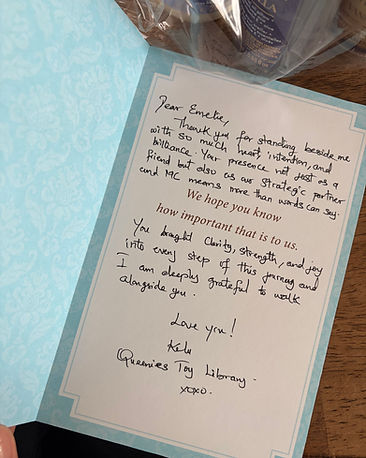 Dear Emelie,
Thank you for standing beside me
with so much heart, intention, and
brilliance. Your presence not just as a
friend but also as our strategic partner
and MC means more than words can say.
We hope you know
how important that is to us.
You brought Clarity, strength, and joy
into every step of this journey and
I am deeply grateful to walk
alongside you.
Love you!
Queenies Toy Library.
xoxo.